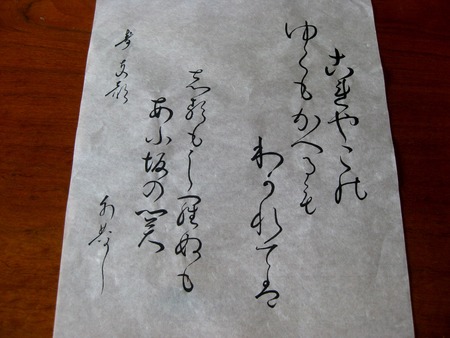 これやこの
ゆくもかへるも
わかれては
志るもしらぬも
あふ坂の関